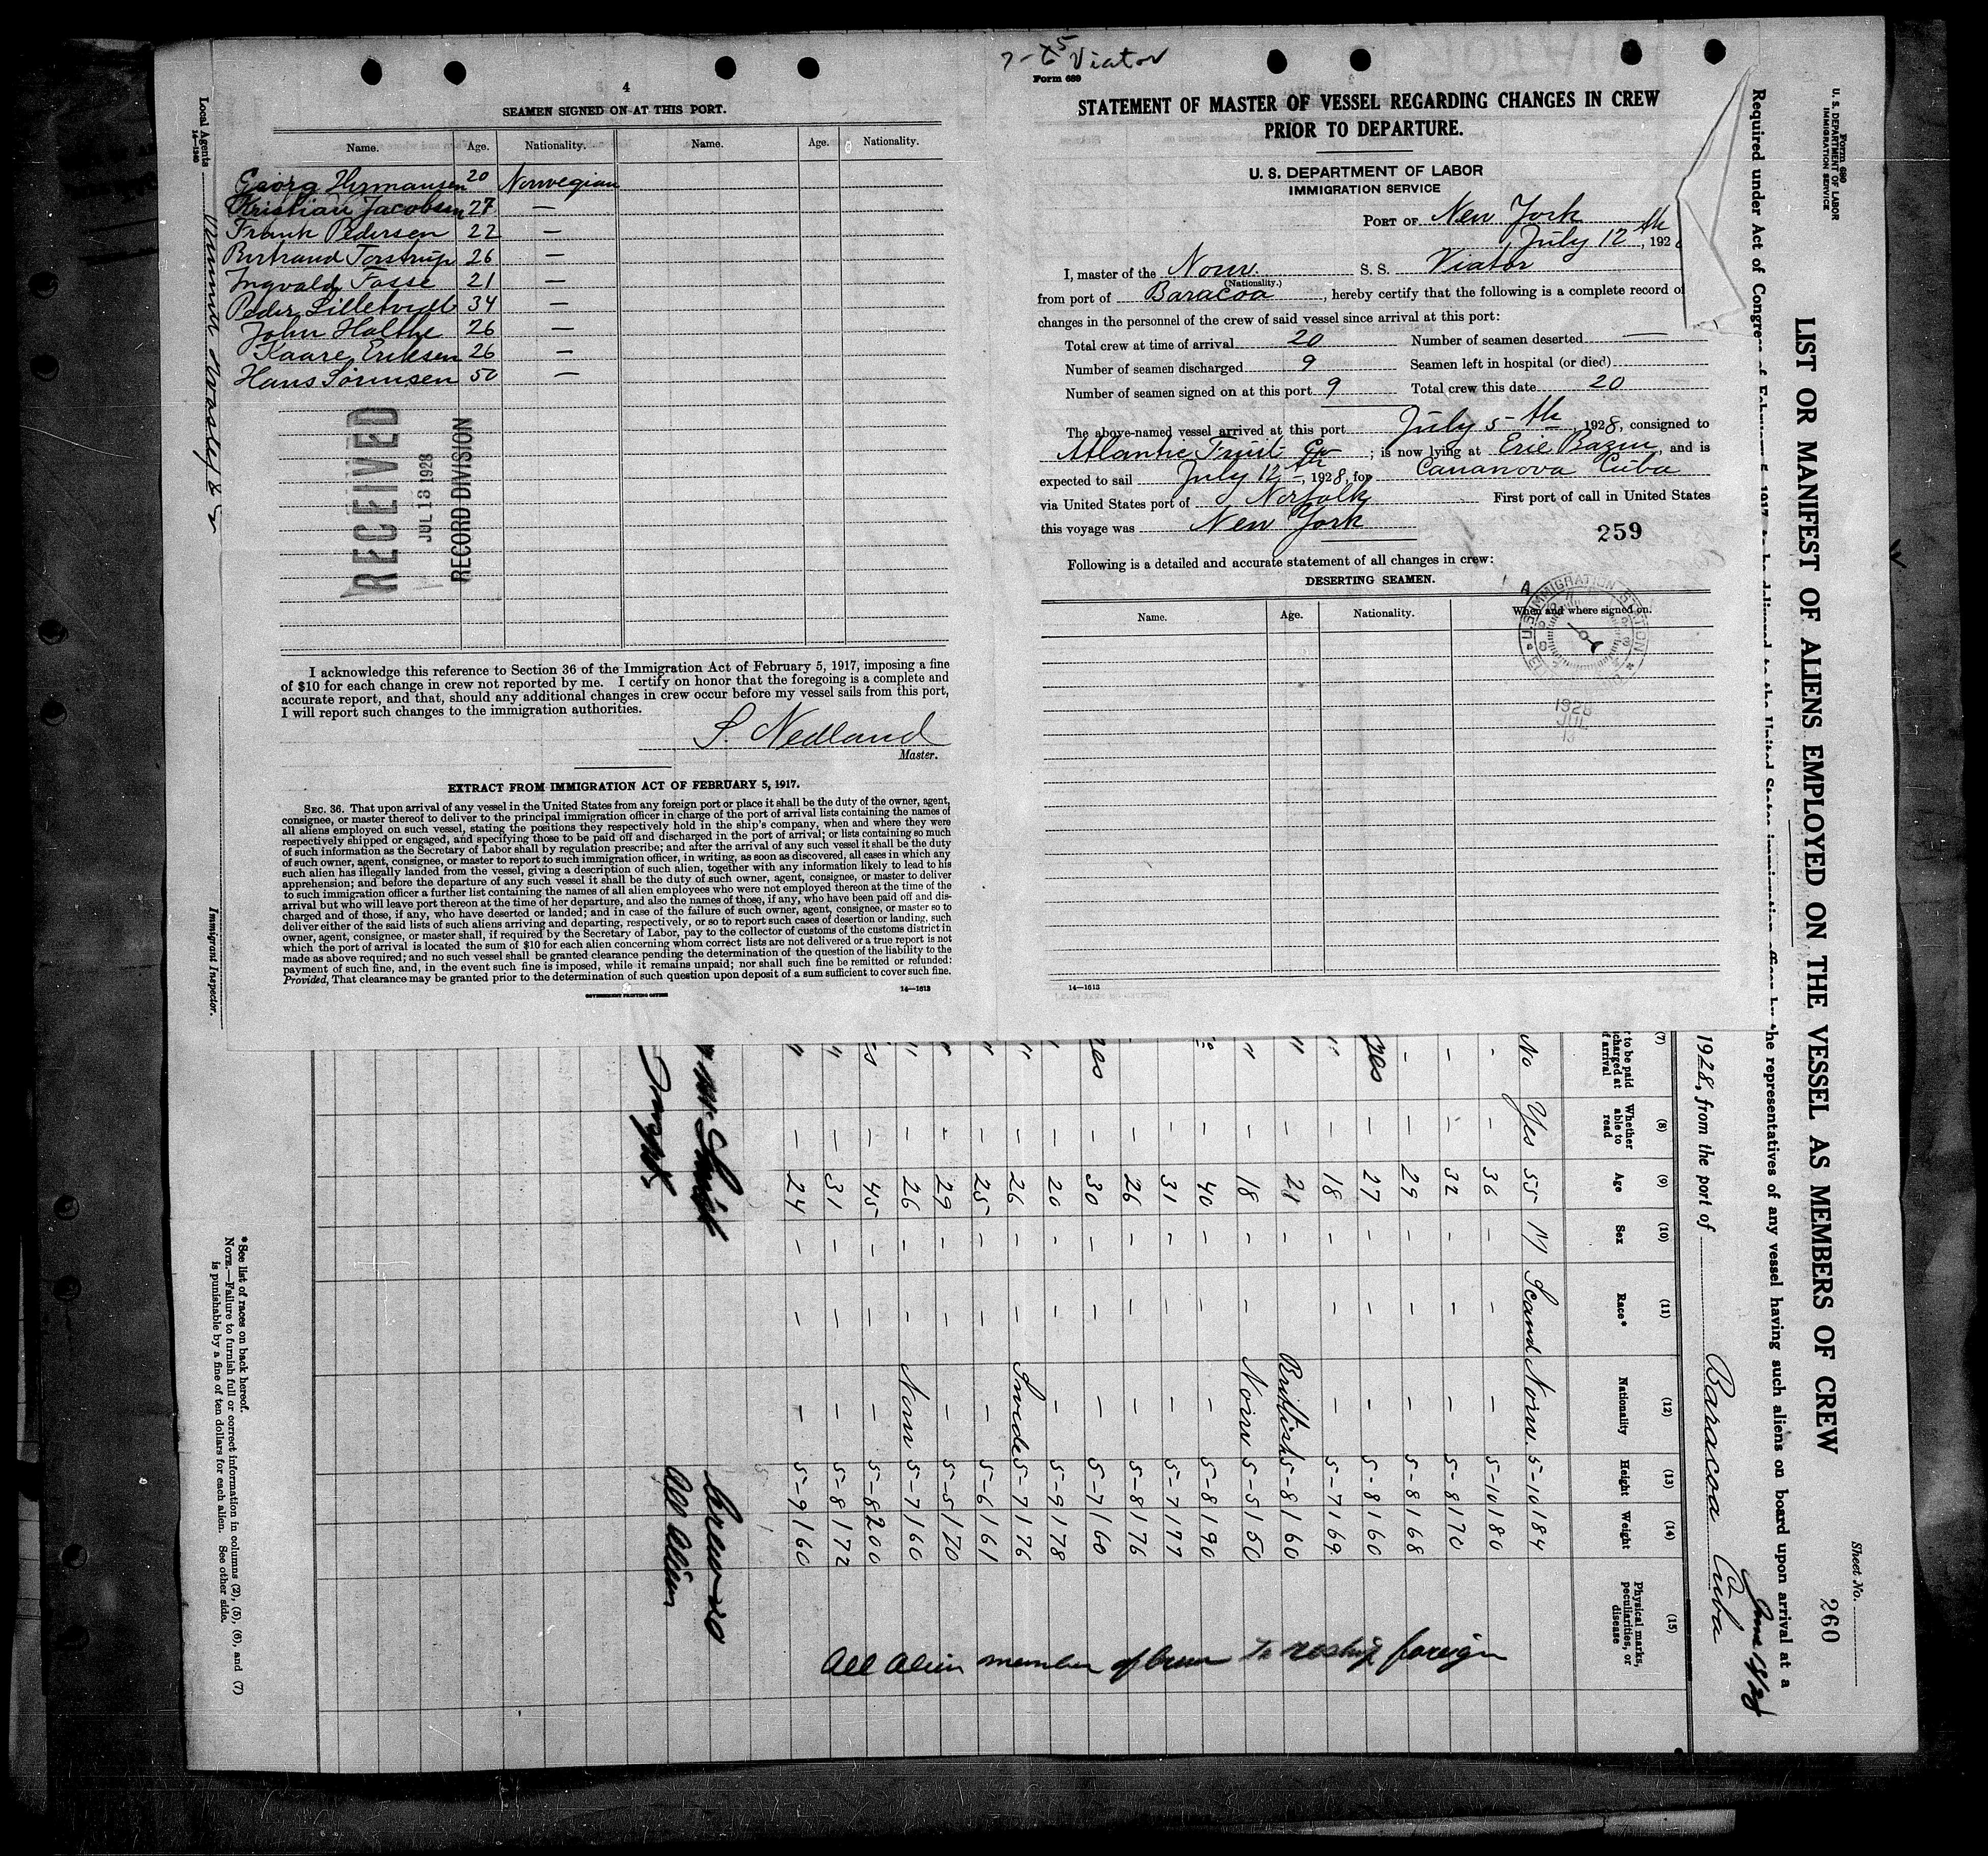 7-5 Viator
4
SEAMEN SIGNED ON AT THIS PORT.
Name. Age. Nationality. Name. Age. Nationality.
Georg Hermansen 20 Norwegian
Kristian Jacobsen 27 —
Frank Pedersen 22 —
Bertrand Torstrup 26 —
Ingvald Fosse 21 —
Peder Silletvedt 34 —
John Halthe 26 —
Kaare Eriksen 26 —
Hans Sörensen 50 —
RECEIVED
JUL 13 1928
RECORD DIVISION
I acknowledge this reference to Section 36 of the Immigration Act of February 5, 1917, imposing a fine
of $10 for each change in crew not reported by me. I certify on honor that the foregoing is a complete and
accurate report, and that, should any additional changes in crew occur before my vessel sails from this port,
I will report such changes to the immigration authorities.
S. Nedland
Master.
EXTRACT FROM IMMIGRATION ACT OF FEBRUARY 5, 1917.
SEC. 36. That upon arrival of any vessel in the United States from any foreign port or place it shall be the duty of the owner, agent,
consignee, or master thereof to deliver to the principal immigration officer in charge of the port of arrival lists containing the names of
all aliens employed on such vessel, stating the positions they respectively hold in the ship's company, when and where they were
respectively shipped or engaged, and specifying those to be paid off and discharged in the port of arrival; or lists containing so much
of such information as the Secretary of Labor shall by regulation prescribe; and after the arrival of any such vessel it shall be the duty
of such owner, agent, consignee, or master to report to such immigration officer, in writing, as soon as discovered, all cases in which any
such alien has illegally landed from the vessel, giving a description of such alien, together with any information likely to lead to his
apprehension; and before the departure of any such vessel it shall be the duty of such owner, agent, consignee, or master to deliver
to such immigration officer a further list containing the names of all alien employees who were not employed thereon at the time of the
arrival but who will leave port thereon at the time of her departure, and also the names of those, if any, who have been paid off and dis-
charged and of those, if any, who have deserted or landed; and in case of the failure of such owner, agent, consignee, or master so to
deliver either of the said lists of such aliens arriving and departing, respectively, or so to report such cases of desertion or landing, such
owner, agent, consignee, or master shall, if required by the Secretary of Labor, pay to the collector of customs of the customs district in
which the port of arrival is located the sum of $10 for each alien concerning whom correct lists are not delivered or a true report is not
made as above required; and no such vessel shall be granted clearance pending the determination of the question of the liability to the
payment of such fine, and, in the event such fine is imposed, while it remains unpaid; nor shall such fine be remitted or refunded:
Provided, That clearance may be granted prior to the determination of such question upon deposit of a sum sufficient to cover such fine.
GOVERNMENT PRINTING OFFICE
14—1613
Form 689
STATEMENT OF MASTER OF VESSEL REGARDING CHANGES IN CREW
PRIOR TO DEPARTURE.
U. S. DEPARTMENT OF LABOR
IMMIGRATION SERVICE
PORT OF New York
July 12th, 192
I, master of the Norw. S. S. Viator
(Nationality.)
from port of Baracoa, hereby certify that the following is a complete record of
changes in the personnel of the crew of said vessel since arrival at this port:
Total crew at time of arrival 20 Number of seamen deserted —
Number of seamen discharged 9 Seamen left in hospital (or died)
Number of seamen signed on at this port 9 Total crew this date 20
The above-named vessel arrived at this port July 5th, 1928, consigned to
Atlantic Fruit Co; is now lying at Erie Bazin, and is
expected to sail July 12th, 1928, for Cananova Cuba
via United States port of Norfolk First port of call in United States
this voyage was New York
259
Following is a detailed and accurate statement of all changes in crew:
DESERTING SEAMEN.
Name. Age. Nationality. When and where signed on.
U.S. IMMIGRATION STATION
1928
JUL
13
14—1613
Form 680
U. S. DEPARTMENT OF LABOR
IMMIGRATION SERVICE
Sheet No.
260
LIST OR MANIFEST OF ALIENS EMPLOYED ON THE VESSEL AS MEMBERS OF CREW
Required under Act of Congress of February 5, 1917, to be delivered to the United States immigration officer by the representatives of any vessel having such aliens on board upon arrival at a
1928, from the port of Baracoa Cuba
(7) (8) (9) (10) (11) (12) (13) (14) (15)
to be paid
charged at
of arrival
Whether
able to
read
Age
Sex
Race*
Nationality
Height
Weight
Physical marks,
peculiarities, or
disease
No Yes 55 M Scand Norw. 5-10 184
– – 36 – – – 5-10 180
– – 32 – – – 5-8 170
– – 29 – – – 5-8 168
yes – 27 – – – 5-8 160
" – 18 – – – 5-7 169
" – 21 – Brittish 5-8 160
" – 18 – – Norw 5-5 150
No – 40 – – – 5-8 190
– 31 – – – 5-7 177
– 26 – – – 5-8 176
yes – 30 – – – 5-7 160
" – 20 – – – 5-9 178
" – 26 – – Swede 5-7 176
" – 25 – – – 5-6 161
" – 29 – – – 5-5 170
" – 26 – – Norw 5-7 160
– 45 – – – 5-8 200
" – 31 – – – 5-8 172
" – 24 – – – 5-9 160
All Alien member of crew to reship foreign
Crew-20
All Alien
*See list of races on back hereof.
NOTE.—Failure to furnish full or correct information in columns (2), (5), (6), and (7)
is punishable by a fine of ten dollars for each alien. See other side.
Local Agents
14—1240
Immigrant Inspector.